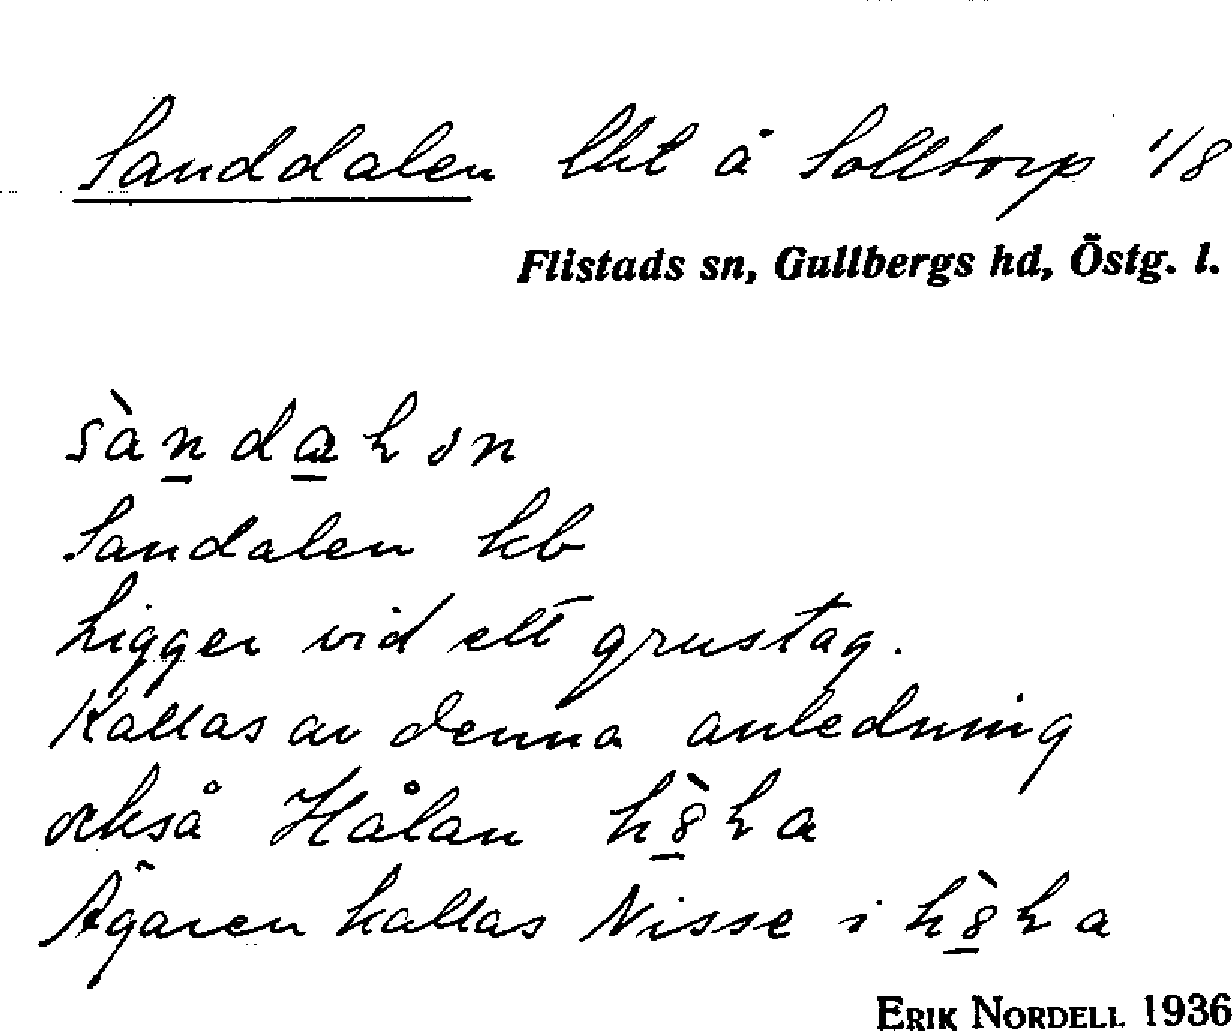 Sanddalen lht å Solltorp 1/8
Flistads sn, Gullbergs hd, Östg. l.
Sandalen kb
Ligger vid ett grustag.
Kallas av denna anledning
också Hålan
Ägaren kallas Nisse i
ERIK NORDELL 1936